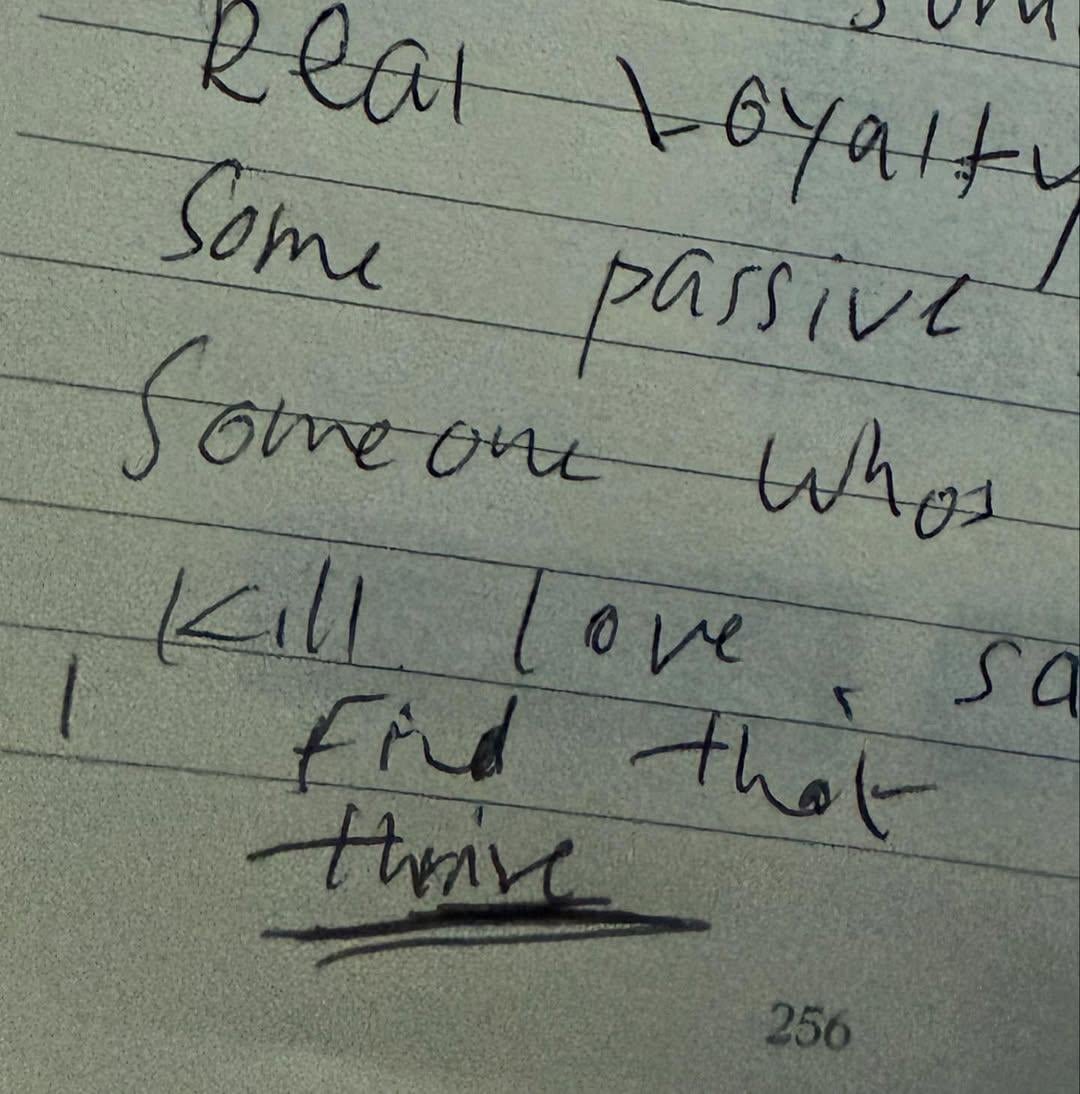 som
Real Loyalty
Some passive
Someone whos
Kill love, sa
I find that
thrive
256